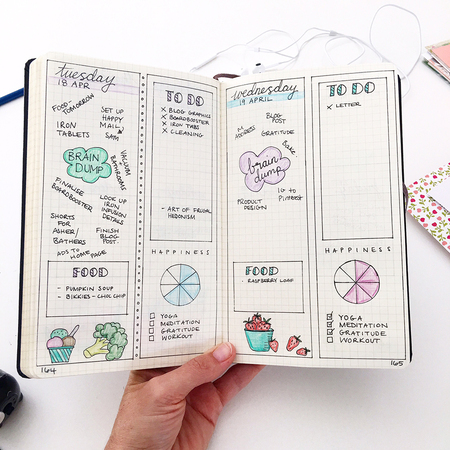 tuesday
18 APR
FOOD-
TOMORROW
SET UP
HAPPY
MAIL
IRON
TABLETS
BRAIN
DUMP
VACUUM
BATHROOMS
FINALISE
BOARDBOOSTER
LOOK UP
IRON
INFUSION
DETAILS
SHORTS
FOR
ASHER/
BATHERS
FINISH
BLOG
POST
ADS TO
HOME PAGE
FOOD
- PUMPKIN SOUP
- BIKKIES - CHOC CHIP
164
TO DO
X BLOG GRAPHICS
X BOARDBOOSTER
X IRON TABS
X CLEANING
- ART OF FRUGAL
HEDONISM
HAPPINESS
YOGA
MEDITATION
GRATITUDE
WORKOUT
wednesday
19 APRIL
BLOG
POST
ADDRESS
GRATITUDE
brain
dump
IG to
Pinterest
PRODUCT
DESIGN
FOOD
- RASPBERRY LOAF
TO DO
X LETTER
HAPPINESS
YOGA
MEDITATION
GRATITUDE
WORKOUT
165